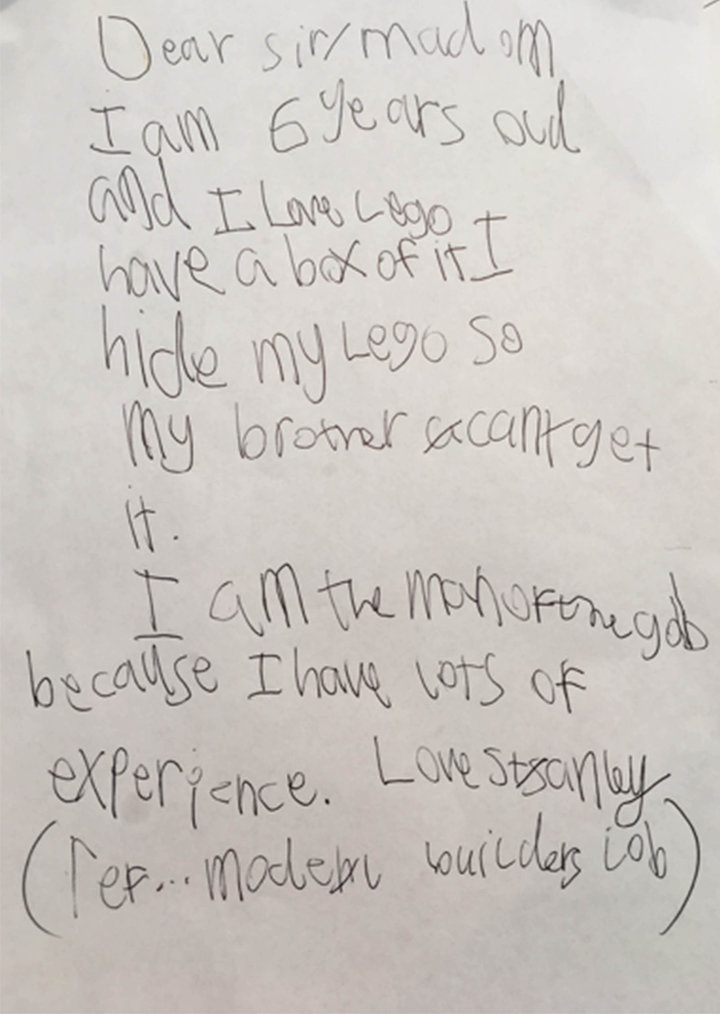 Dear sir/madom
I am 6 years old
and I Love Lego
have a box of it I
hide my Lego so
my brother cant get
it.
I am the man of the gob
because I have lots of
experience. Love Stanley
(ref... model builders iob)